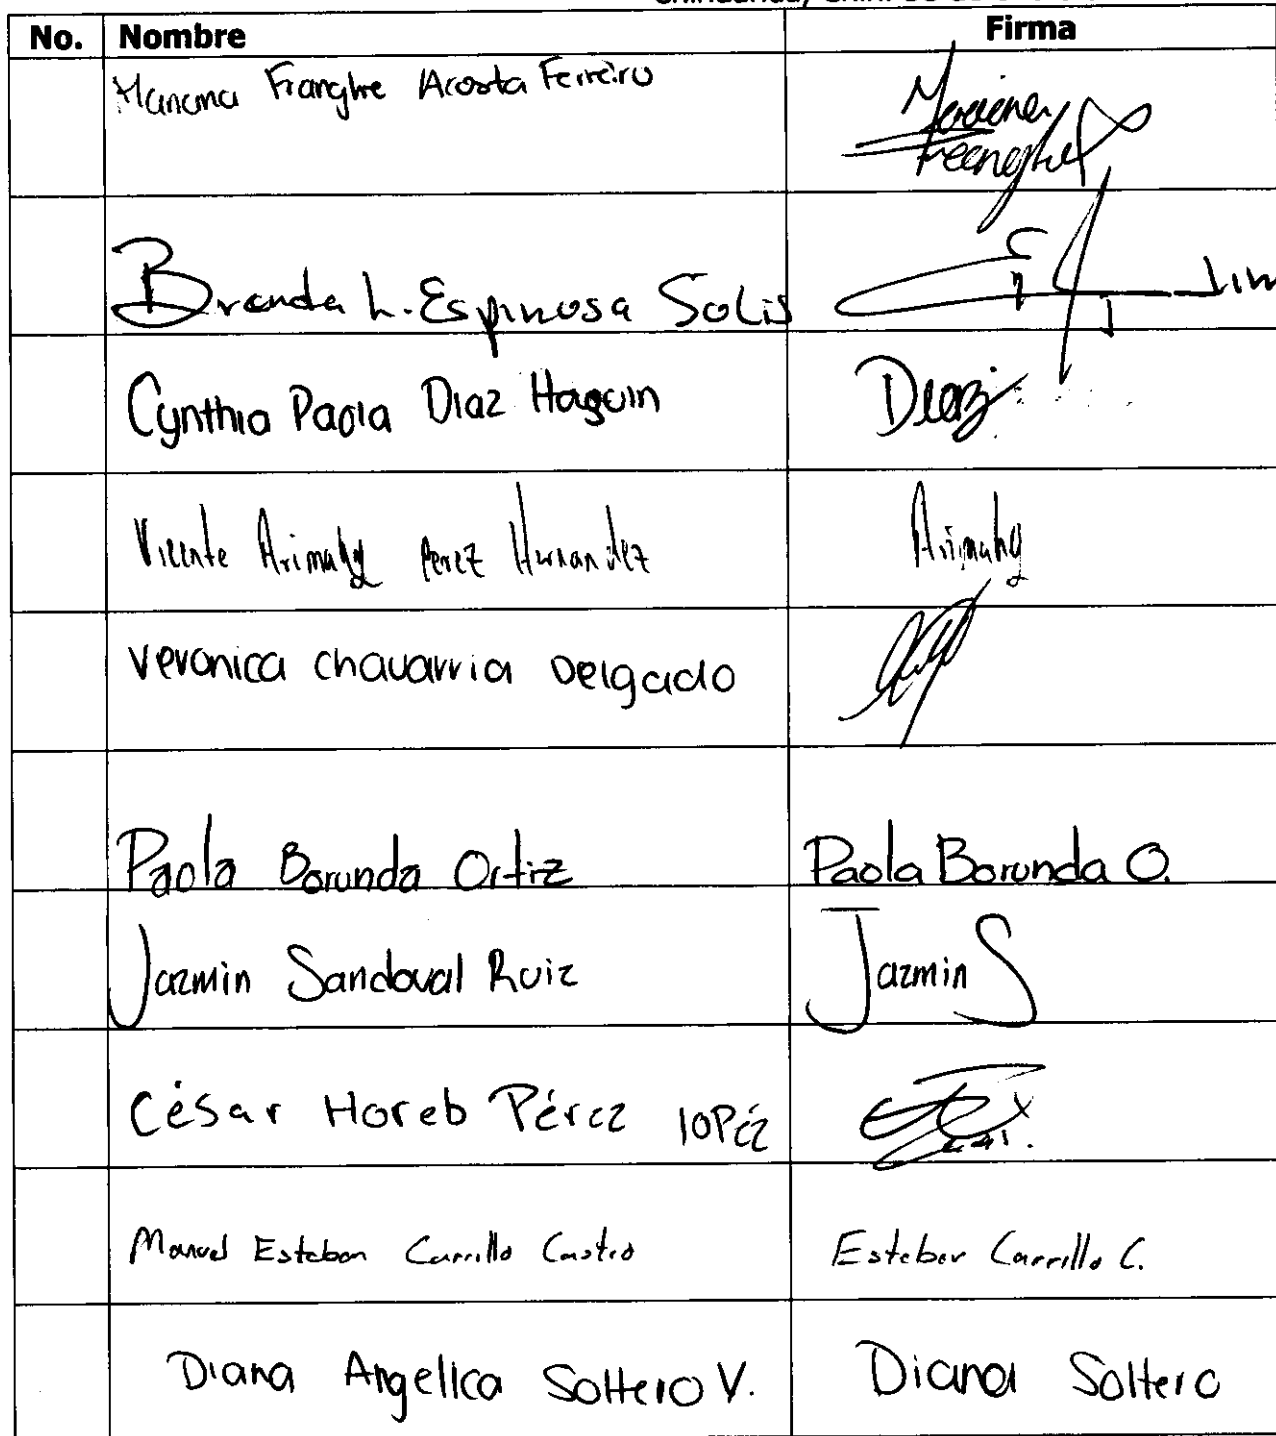 No. Nombre Firma
Mariana Franghie Acosta Ferreiro Mariana
Brenda L. Espinosa Solis
Cynthia Paola Diaz Haguin Diaz
Vicente Arimahy Perez Hernandez Arimahy
Veronica chavarria Delgado
Paola Borunda Ortiz Paola Borunda O.
Jazmin Sandoval Ruiz Jazmin S
César Horeb Pérez lopéz
Manuel Esteban Carrillo Castro Esteban Carrillo C.
Diana Angelica Soltero V. Diana Soltero